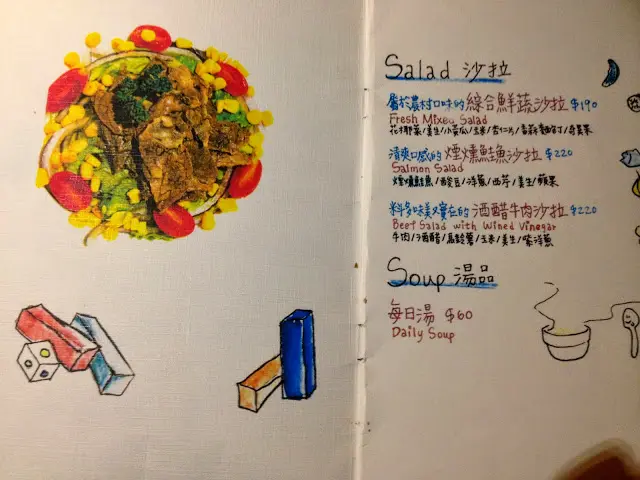 Salad 沙拉
屬於農村口味的 綜合鮮蔬沙拉 $190
Fresh Mixed Salad
花椰菜/美生/小黃瓜/玉米/杏仁片/蕃茄/麵包丁/奇異果
清爽口感的 煙燻鮭魚沙拉 $220
Salmon Salad
煙燻鮭魚/酸豆/洋蔥/西芹/美生/蘋果
料多味美又實在的 酒醋牛肉沙拉 $220
Beef Salad with Wined Vinegar
牛肉/酒醋/馬鈴薯/玉米/美生/紫洋蔥
Soup 湯品
每日湯 $60
Daily Soup